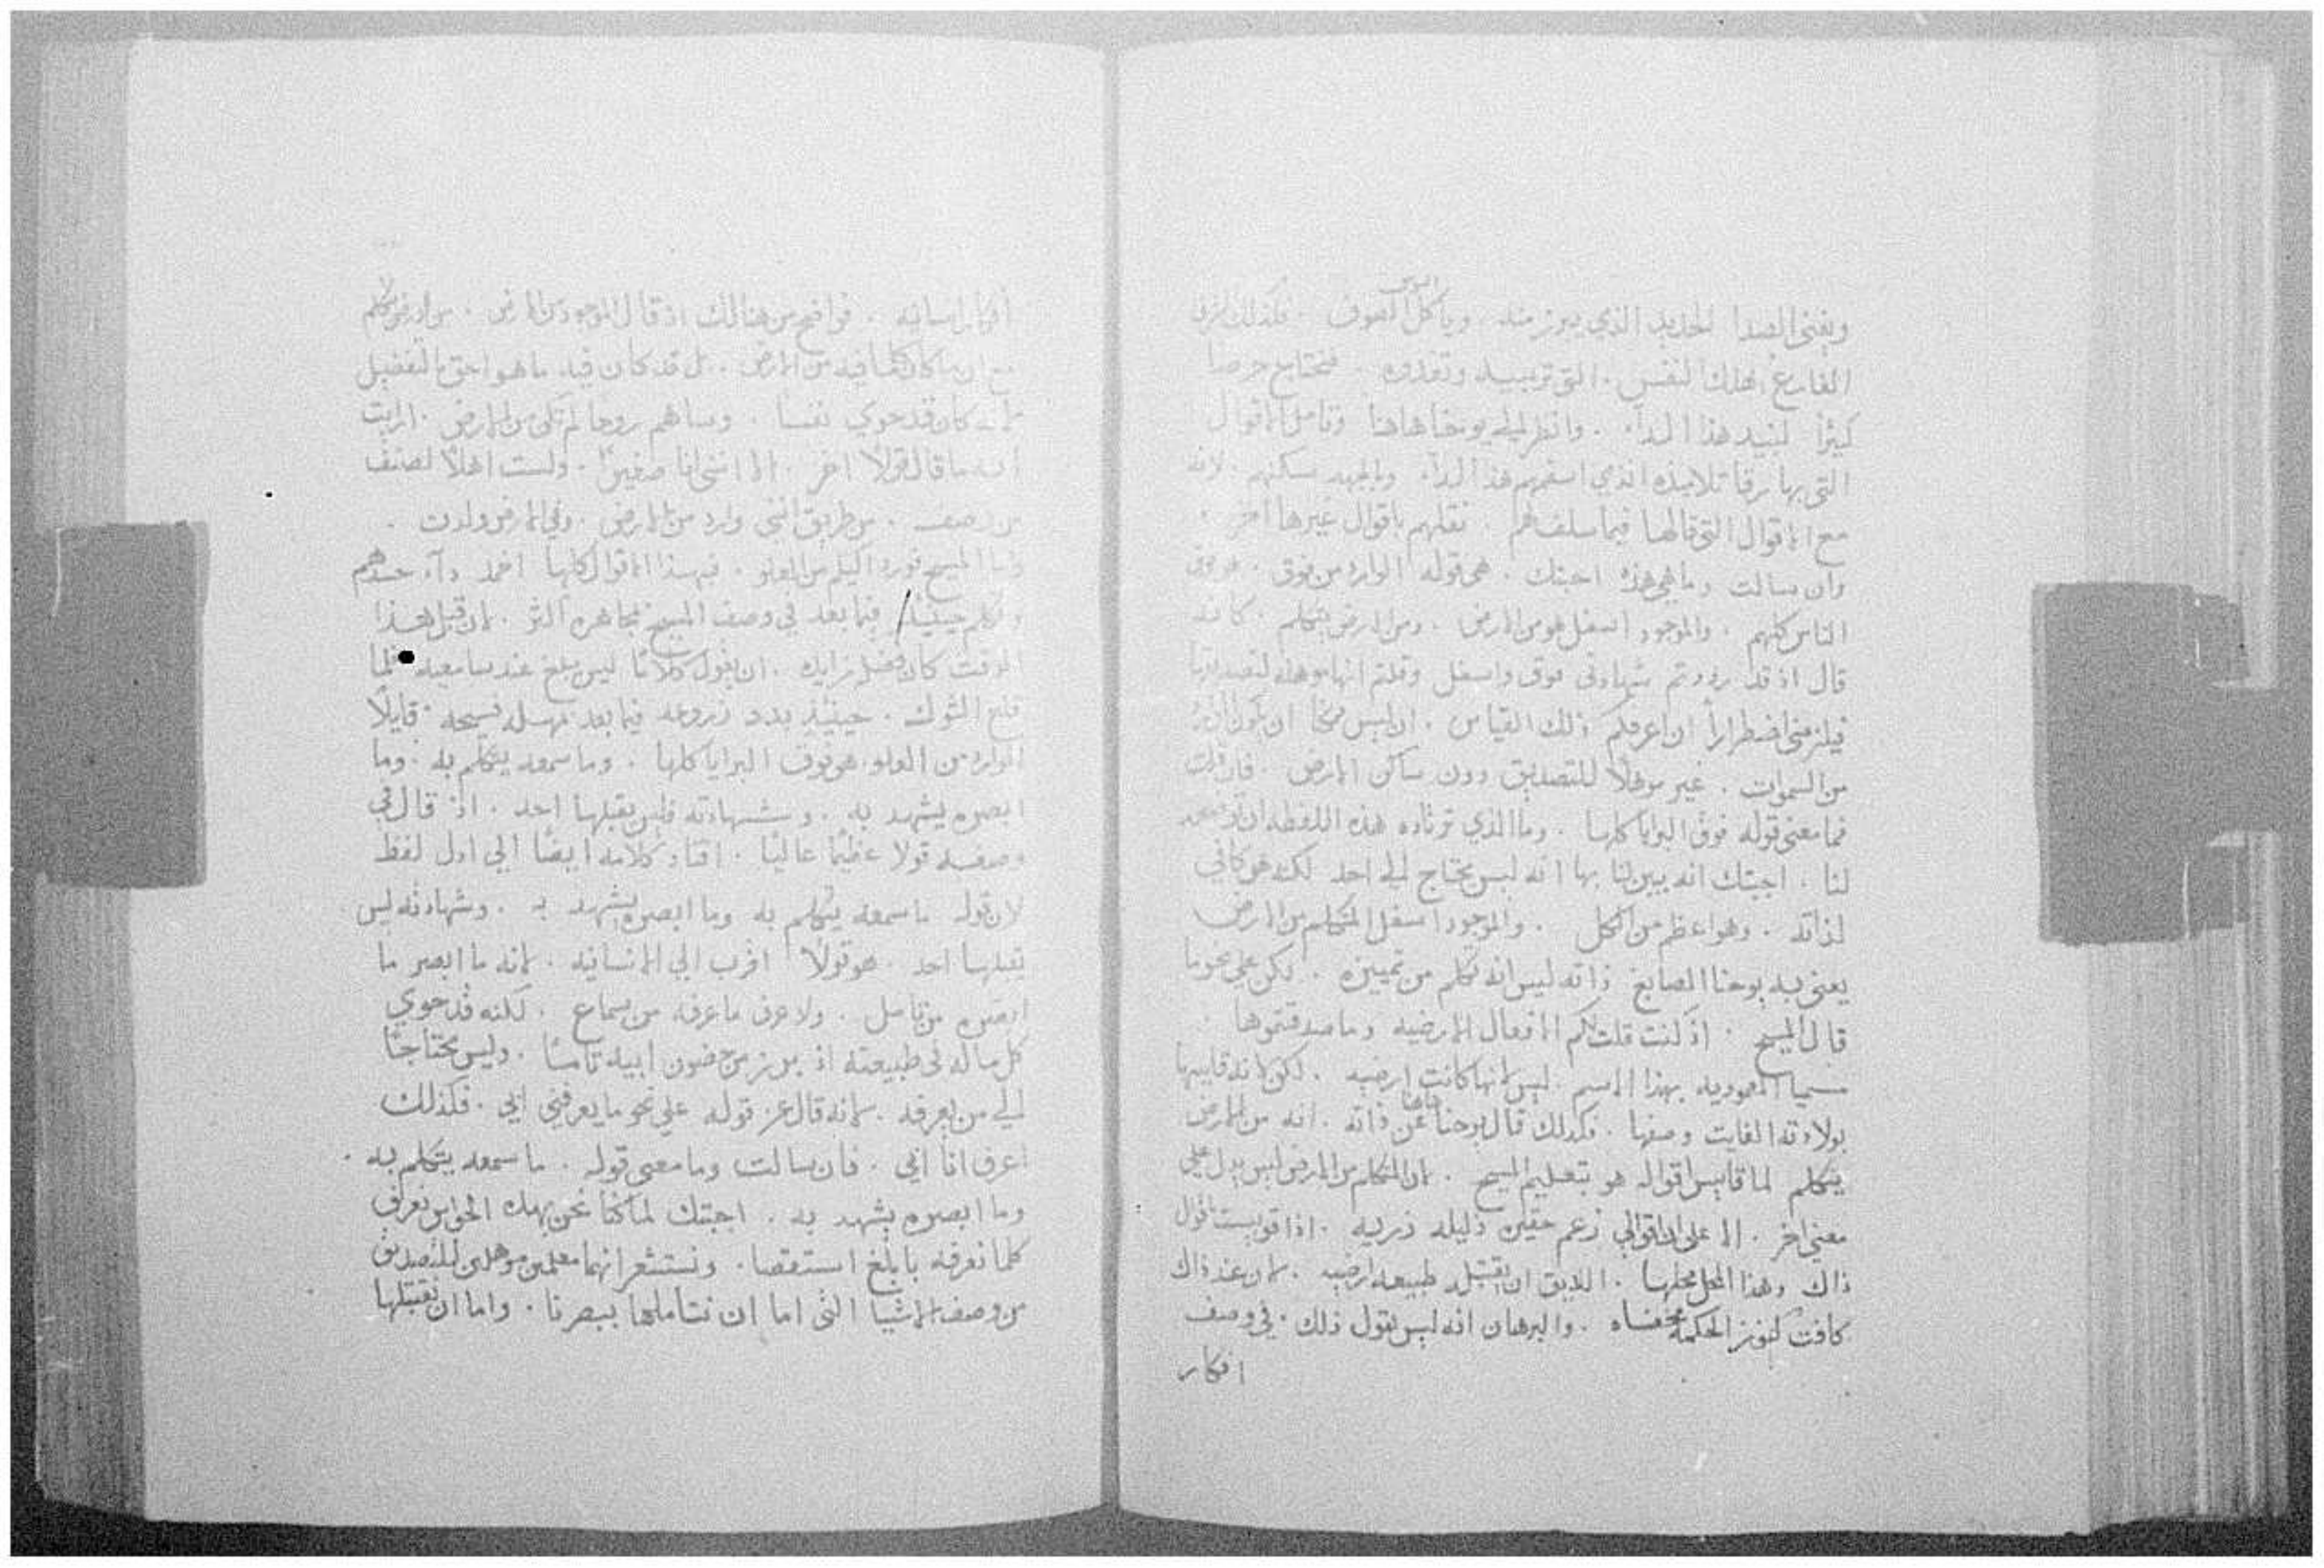 السوس
ويفني الصدا الحديد الذي يبرز منه . وياكل الصوف . فكذلك شرف
الفارغ يهلك النفس . التي تربيه وتغذوه . فنحتاج حرصا
كثيرا لنبيد هذا الدا . وانظر الي يوحنا هاهنا وتامل الاقوال
التي بها رقا تلاميذه الذي اسقمهم هذا الدا . وبالجهد سكنهم . لانه
مع الاقوال التي قالها فيما سلف لهم . نقلهم باقوال غيرها اخر .
وان سالت وما هي هذه اجبتك . هي قوله الوارد من فوق . هو فوق
الناس كلهم . والموجود اسفل هو من الارض . ومن الارض يتكلم . كانه
قال اذ قد رددتم شهادتي فوق واسفل وقلتم انها موهله لتصديقها
فيلزمني اضطرارا ان اعرفكم ذلك القياس . ان ليس ممكنا ان يكون الوارد
من السموات . غير موهلا للتصديق دون ساكن الارض . فان قلت
فما معني قوله فوق البرايا كلها . وما الذي تريده هذه اللفظه ان توضحه
لنا . اجبتك انه يبين لنا بها انه ليس يحتاج الي احد لكنه هو كافي
لذاته . وهو اعظم من الكل . والموجود اسفل المتكلم من الارض
يعني به يوحنا الصابغ ذاته ليس انه تكلم من تمييزه . لكن علي نحو ما
قال المسيح . اذ كنت قلت لكم الافعال الارضيه وما صدقتموها .
مسميا المعموديه بهذا الاسم . ليس لانها كانت ارضيه . لكن لانه قايسها
بولادته الفايت وصفها . فكذلك قال يوحنا هاهنا عن ذاته . انه من الارض
يتكلم لما قايس اقواله هو بتعليم المسيح . لان المتكلم من الارض ليس يدل علي
معني اخر . الا علي ان اقوالي زعم حقيره ذليله زريه . اذا قويست باقوال
ذاك وهذا المحل محلها . اللايق ان يقتبله طبيعه ارضيه . لان عند ذاك
كافت كنوز الحكمه مختفاه . والبرهان انه ليس يقول ذلك . في وصف
افكار
افكار انسانيه . فواضح من هنالك اذ قال الموجود من الارض . من الارض يتكلم
مع ان ما كان كلما فيه من الارض . بل قد كان فيه ما هو احق بالتفضيل
لانه كان قد حوي نفسا . وساهم روحا لم تكن من الارض . ارايت
انه ما قال قولا اخر . الا انني انا صغير . ولست اهلا لصنف
من وصف . من طريق انني وارد من الارض . وفي الارض ولدت .
واما المسيح فورد اليكم من العلو . فبهذه الاقوال كلها اخمد دا حسدهم
وتكلم حينيذ فيما بعد في وصف المسيح بمجاهره اكثر . لان قبل هذا
الوقت كان فضل رايه . ان يقول كلاما ليس يبلغ عند سامعيه فلما
قلع الشوك . حينيذ بدد زروعه فيما بعد مهله فسيحه . قايلا
الوارد من العلو . هو فوق البرايا كلها . وما سمعه يتكلم به . وما
ابصره يشهد به . وشهادته فليس يقبلها احد . اذ قال في
وصفه قولا عظيما عاليا . اقتاد كلامه ايضا الي اول لفظ
لان قوله ما سمعه يتكلم به وما ابصره يشهد به . وشهادته ليس
يقبلها احد . هو قولا اقرب الي الانسانيه . لانه ما ابصر ما
ابصره من تامل . ولا عرف ما عرفه من سماع . لكنه قد حوي
كل ما له في طبيعته اذ برز من حضون ابيه تامًا . وليس محتاجًا
الي من يعرفه . لانه قال عز قوله علي نحو ما يعرفني ابي . فكذلك
اعرف انا ابي . فان سالت وما معني قوله . ما سمعه يتكلم به .
وما ابصره يشهد به . اجبتك لما كنا نحن بهذه الحواس نعرف
كلما نعرفه بابلغ استقصا . ونستشعر انهما معلمين موهلين للتصديق
من وصف الاشيا التي اما ان نتاملها ببصرنا . واما ان نقتبلها